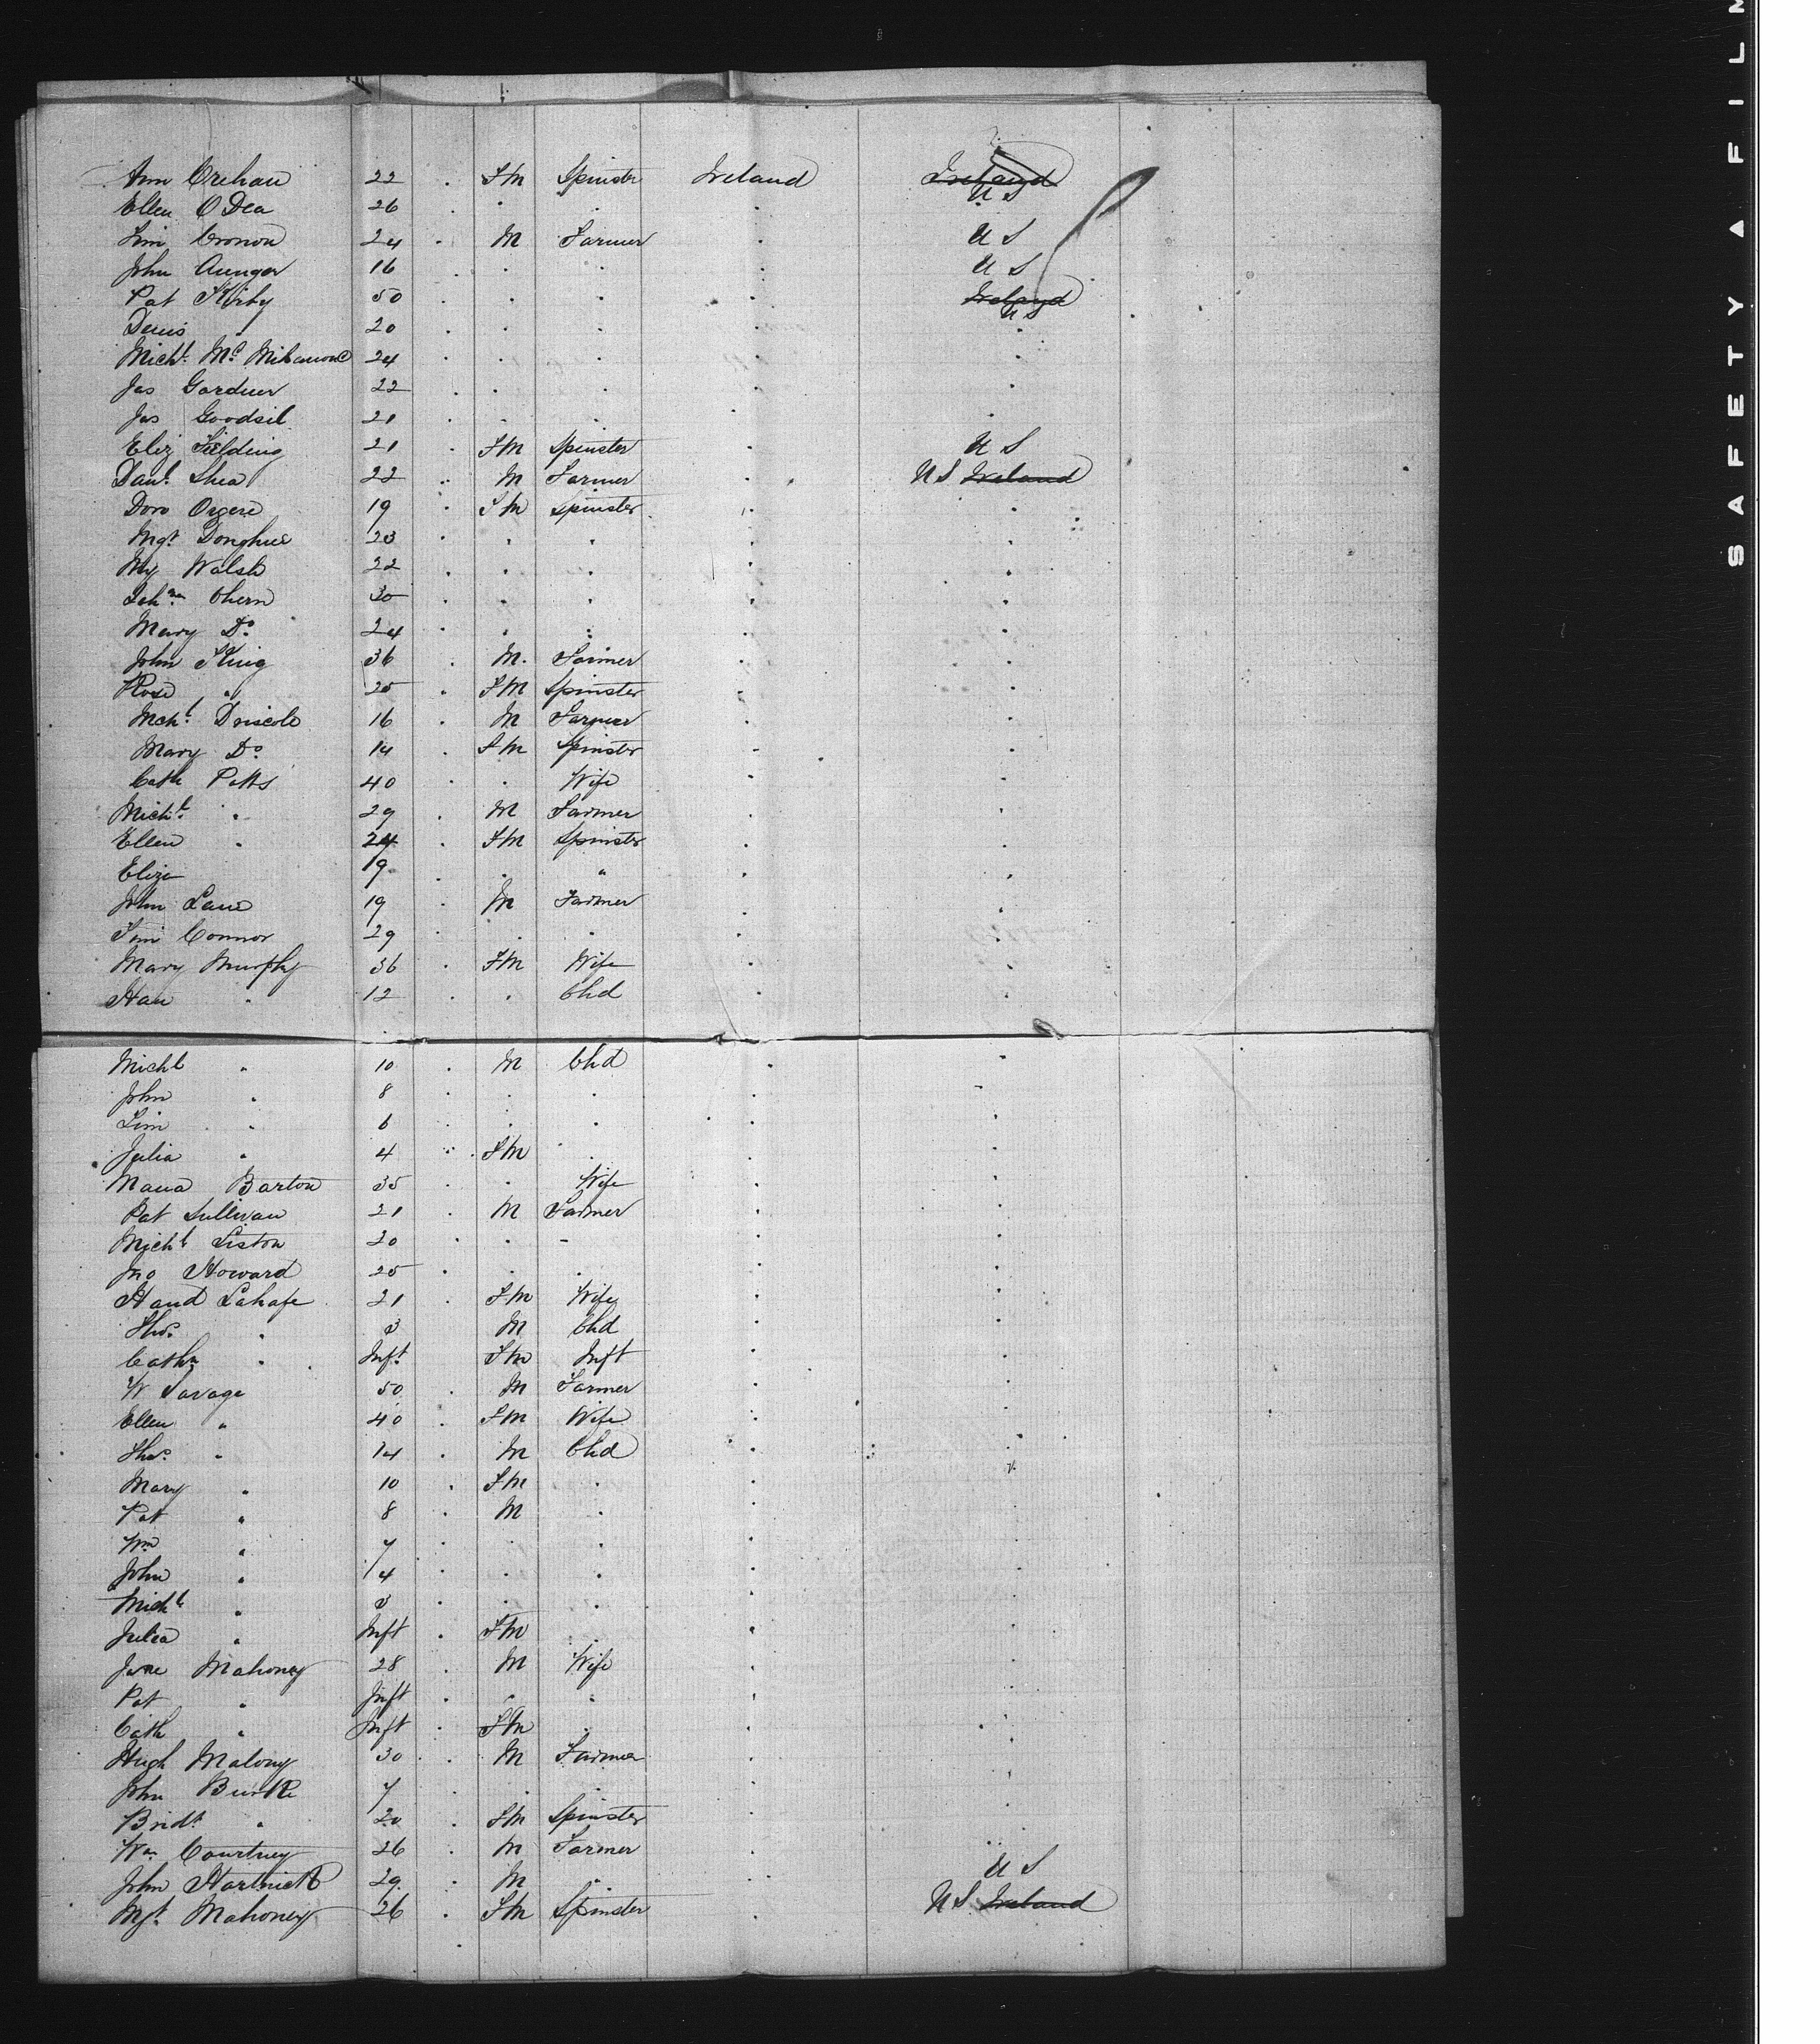 Ann Crehan 22 . FM Spinster Ireland Ireland U S
Ellen O Dea 26 . . . .
Tim Cronon 24 . M Farmer . U S
John Aungor 16 . . . . U S
Pat Kirby 50 . . . . Ireland U S
Denis " 20 . . . . .
Michl. Mc 24 . . . . .
Jas Gardner 22 . . . . .
Jas Goodsil 21 . . . . .
Eliz Fielding 21 . FM Spinster . U S
Danl. Shea 22 . M Farmer . U S Ireland
19 . FM Spinster . .
Mgt. Donghue 23 . . . . .
My Walsh 22 . . . . .
Johna. Ahern 30 . . . . .
Mary Do. 24 . . . . .
John King 36 . M. Farmer . .
Rose " 25 . FM Spinster . .
Mchl. Driscole 16 . M Farmer . .
Mary Do. 14 . FM Spinster . .
Cath Potts 40 . . Wife . .
Michl. " 29 . M Farmer . .
Ellen " 24 . FM Spinster . .
Eliza 19 . . " . .
John Lane 19 . M Farmer . .
Tim Connor 29 . . . . .
Mary Murphy 36 . FM Wife . .
Han " 12 . . Chd . .
Michl " 10 . M Chd . .
John " 8 . . . . .
Tim " 6 . . . . .
Julia " 4 . FM . . .
Maria Barton 35 . . Wife . .
Pat Sullivan 21 . M Farmer . .
Michl Liston 20 . . . . .
Jno Howard 25 . . . . .
21 . FM Wife . .
Thos. " 3 M Chd . .
Cathn " Inft. FM Inft . .
W Savage 50 . M Farmer . .
Ellen " 40 . FM Wife . .
Thos. " 14 . M Chd . .
Mary " 10 . FM . . .
Pat " 8 . M . . .
Wm " 7 . . . . .
John " 4 . . . . .
Michl " 3 . . . . .
Julia " Inft . FM . . .
Jane Mahoney 28 . M Wife . .
Pat " Inft . . . . .
Cath " Inft . FM . . .
Hugh Malony 30 . M Farmer . .
John Burke 7 . . . . .
Bridt. " 20 . FM Spinster . .
Wm Courtney 26 . M Farmer . .
John Hartnett 29. . M . . U S
Mgt. Mahoney 26 . FM Spinster . U S Ireland
SAFETY A FILM